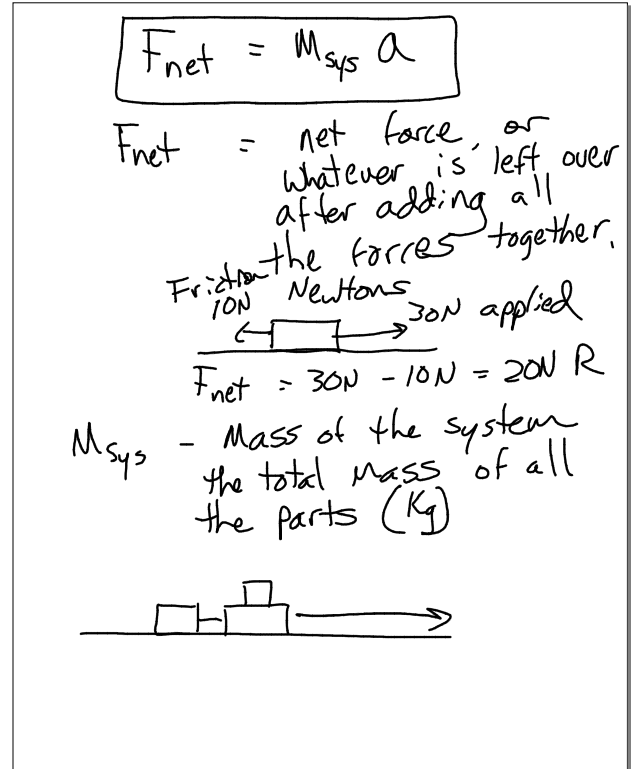 Fnet = Msys a
Fnet = net force, or
whatever is left over
after adding all
the forces together.
Friction Newtons
10N 30N applied
Fnet = 30N - 10N = 20N R
Msys - Mass of the system
the total mass of all
the parts (Kg)